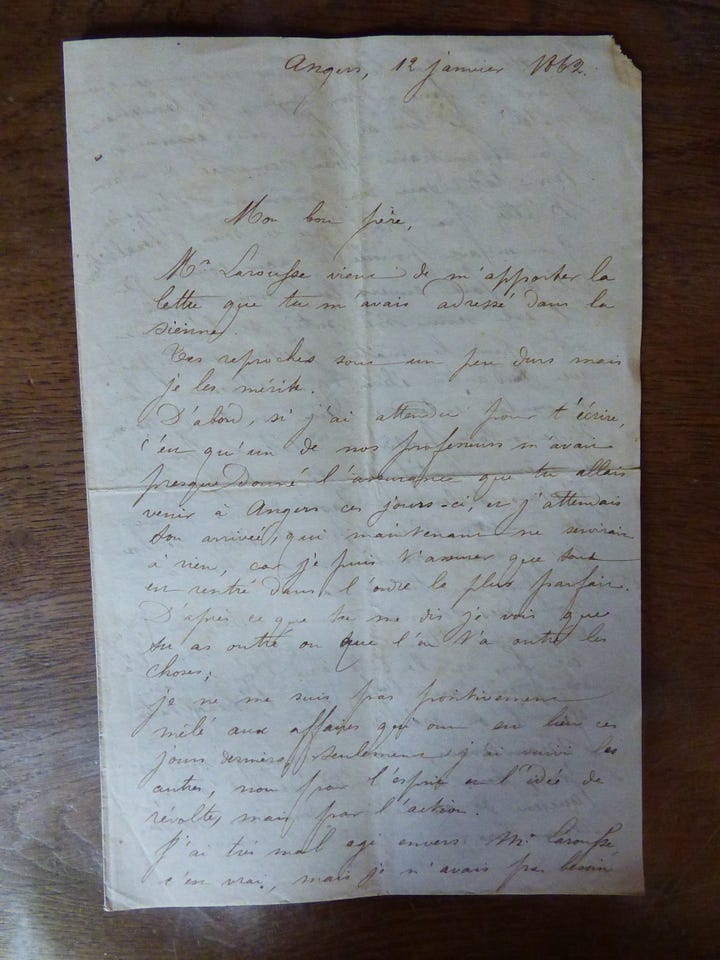 Angers, 12 janvier 1862.
Mon bon père,
Mr Larousse vient de m'apporter la
lettre que tu m'avais adressé dans la
sienne.
Tes reproches sont un peu durs mais
je les mérite.
D'abord, si j'ai attendu pour t'écrire,
c'est qu'un de nos professeurs m'avait
presque donné l'assurance que tu allais
venir à Angers ces jours-ci, et j'attendais
ton arrivée, qui maintenant ne servirait
à rien, car je puis t'assurer que tout
est rentré dans l'ordre le plus parfait.
D'après ce que tu me dis je vois que
tu as outré ou que l'on t'a outré les
choses;
je ne me suis pas positivement
mêlé aux affaires qui ont eu lieu ces
jours derniers, seulement j'ai suivi les
autres, non par l'esprit et l'idée de
révolte, mais par l'action.
J'ai très mal agi envers Mr Larousse,
c'est vrai, mais je n'avais pas besoin